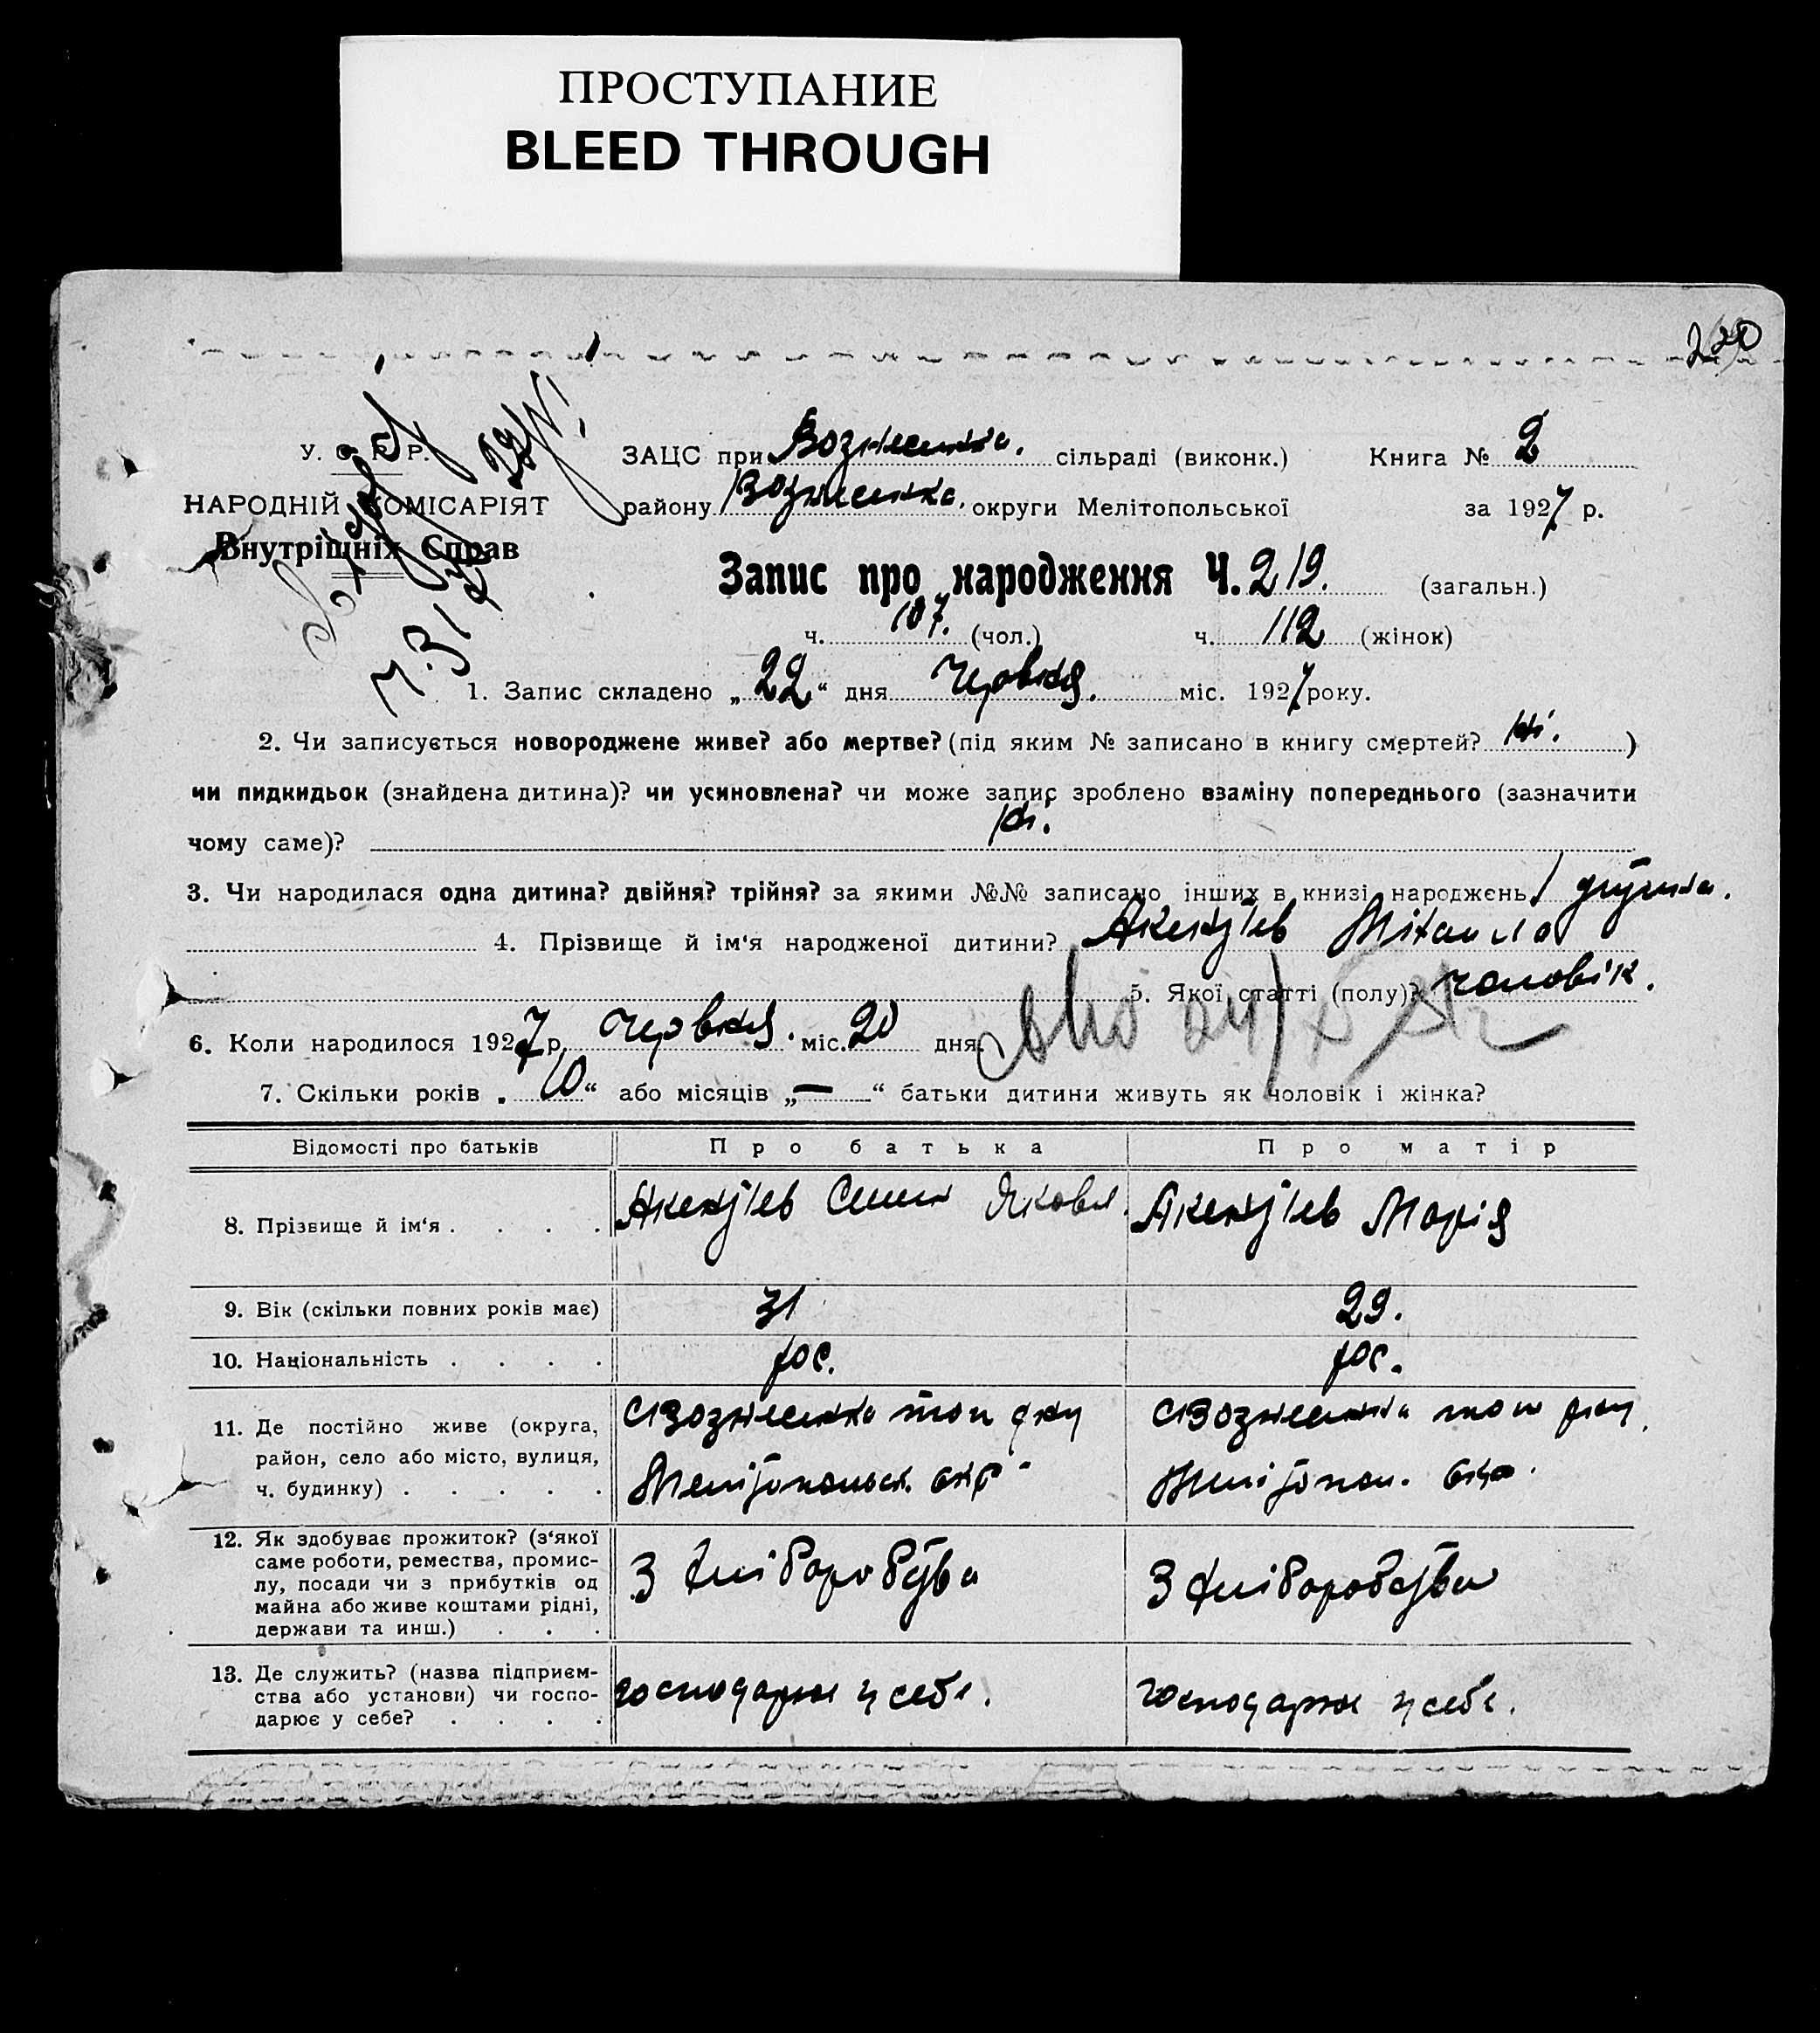 ПРОСТУПАНИЕ
BLEED THROUGH
У. С. Р. Р.
НАРОДНІЙ КОМІСАРІЯТ
Внутрішніх Справ
ЗАЦС при Вознесенка. сільраді (виконк.) Книга № 2
району Вознесенка, округи Мелітопольської за 1927 р.
Запис про народження Ч. 219. (загальн.)
ч. 107. (чол.) ч. 112 (жінок)
1. Запис складено „22“ дня Червня. міс. 1927 року.
2. Чи записується новороджене живе? або мертве? (під яким № записано в книгу смертей? ні. )
чи пидкидьок (знайдена дитина)? чи усиновлена? чи може запис зроблено взаміну попереднього (зазначити
чому саме)? ні.
3. Чи народилася одна дитина? двійня? трійня? за якими №№ записано інших в книзі народжень
4. Прізвище й ім‘я народженої дитини?
5. Якої статті (полу)? чоловік.
6. Коли народилося 1927 р. Червня. міс. 20 дня.
7. Скільки років „10“ або місяців „—“ батьки дитини живуть як чоловік і жінка?
Відомості про батьків Про батька Про матір
8. Прізвище й ім‘я . . . . Семен Яковл. Марія
9. Вік (скільки повних років має) 31 29.
10. Національність . . . . рос. рос.
11. Де постійно живе (округа,
район, село або місто, вулиця,
ч. будинку) . . . . .
с Вознесенка
Мелітопольск. окр
с Вознесенка
Мелітопол. окр.
12. Як здобуває прожиток? (з‘якої
саме роботи, ремества, промис-
лу, посади чи з прибутків од
майна або живе коштами рідні,
держави та инш.) . . .
З хліборобства
З хліборобства
13. Де служить? (назва підприєм-
ства або установи) чи госпо-
дарює у себе? . . . .
господарює у себе.
господарює у себе.